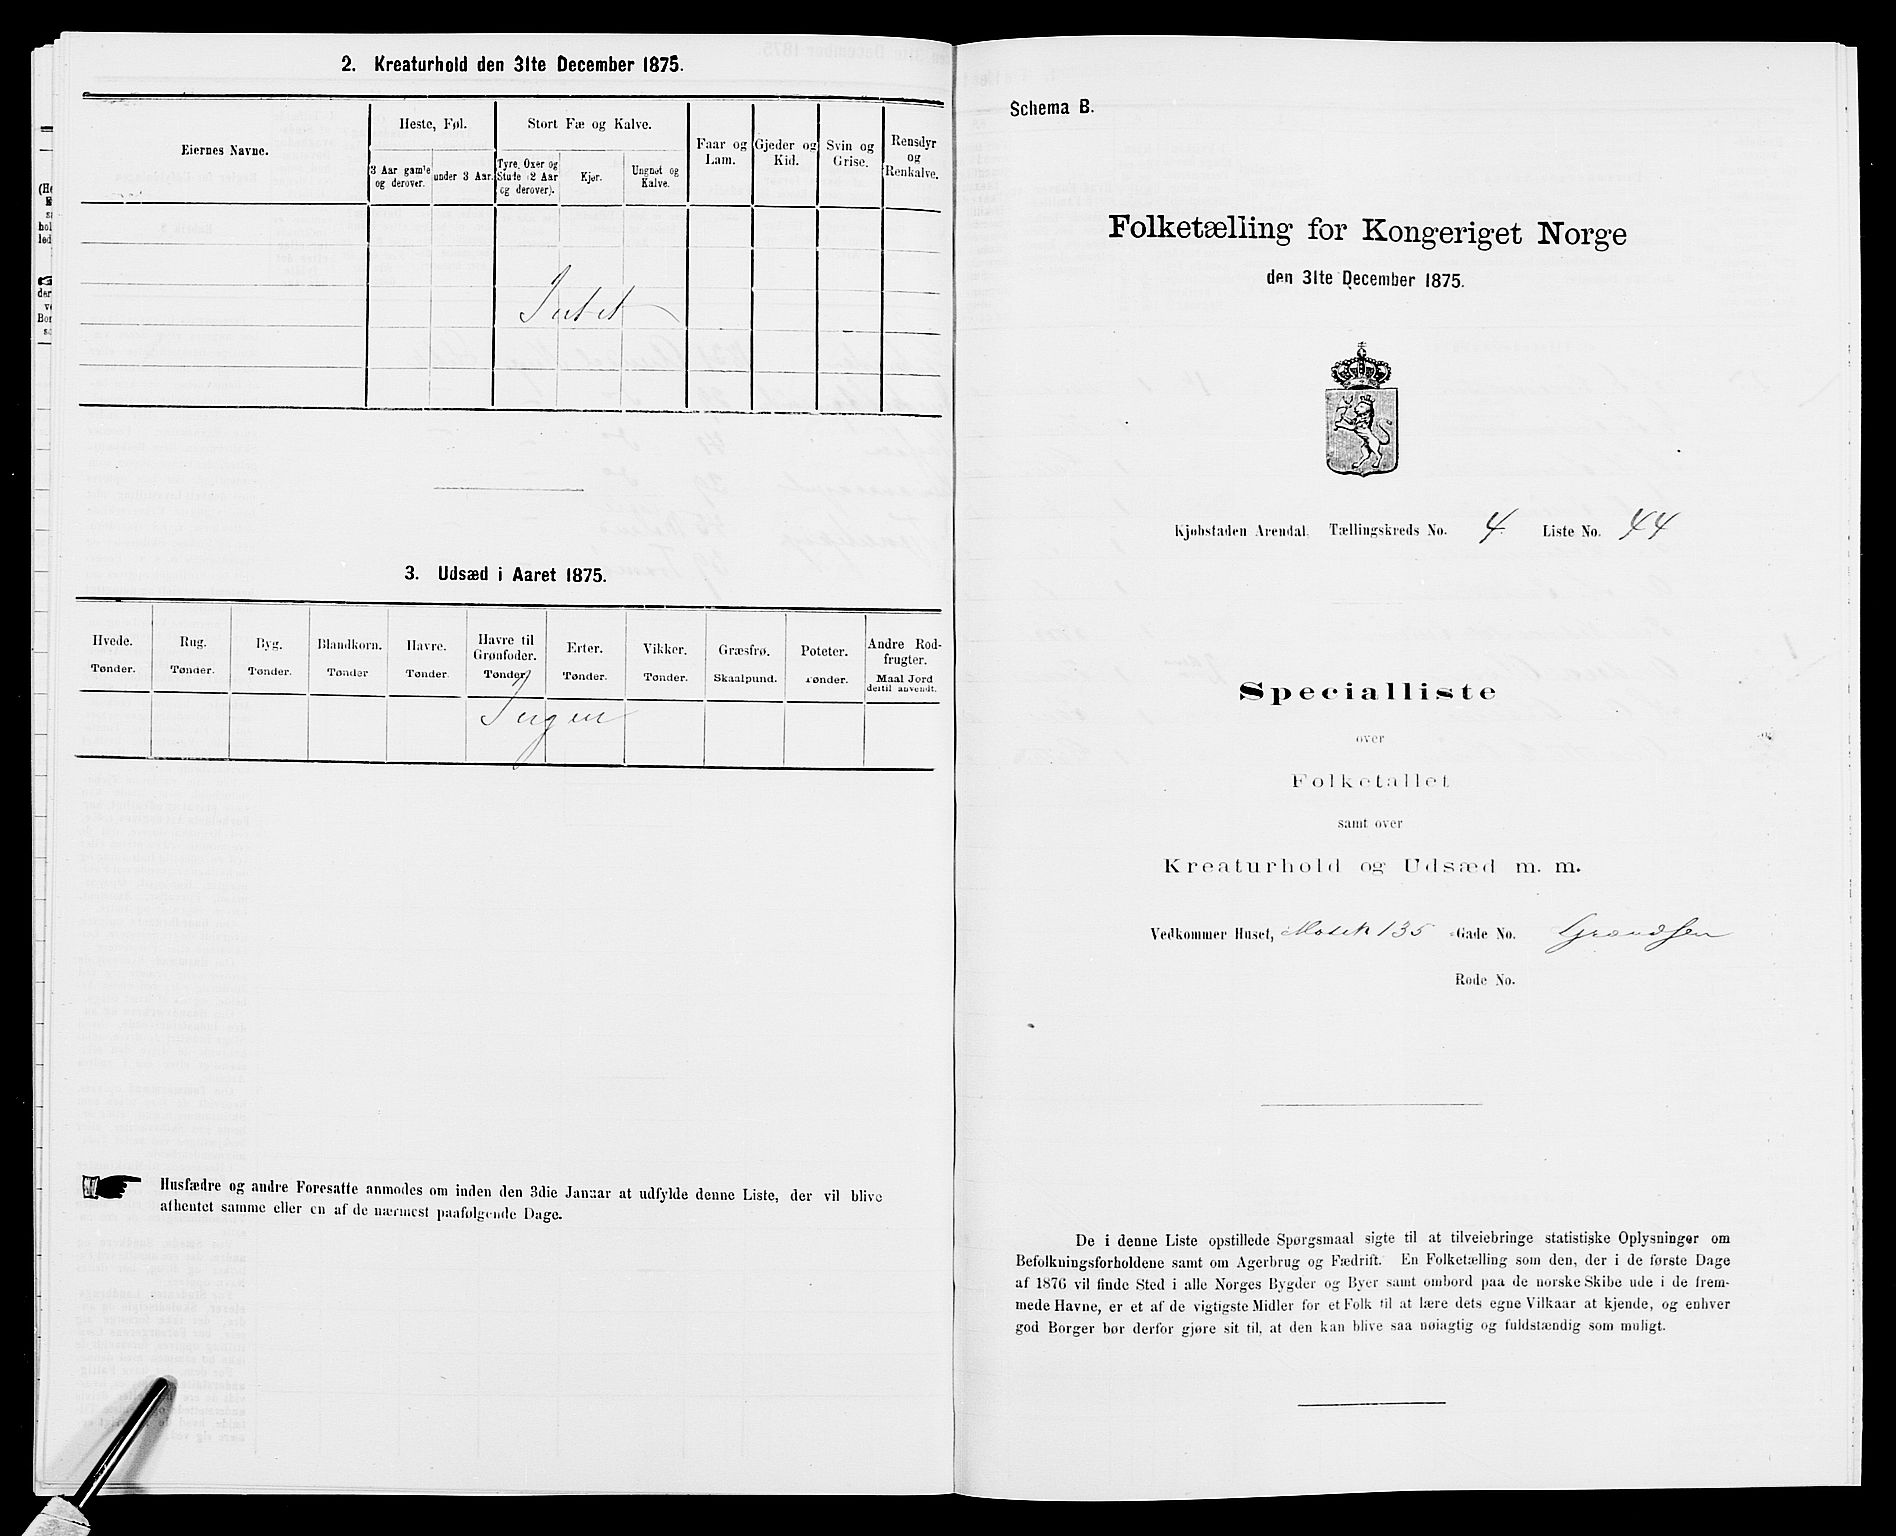 2. Kreaturhold den 31te December 1875.
Eiernes Navne.
Heste, Føl.
Stort Fæ og Kalve.
Faar og Lam.
Gjeder og Kid.
Svin og Grise.
Rensdyr og Renkalve.
3 Aar gamle og derover.
under 3 Aar.
Tyre, Oxer og Stude (2 Aar og derover).
Kjør.
Ungnøt og Kalve.
Intet
3. Udsæd i Aaret 1875.
Hvede. Tønder.
Rug. Tønder.
Byg. Tønder.
Blandkorn. Tønder
Havre. Tønder.
Havre til Grønfoder. Tønder
Erter. Tønder.
Vikker. Tønder.
Græsfrø. Skaalpund.
Poteter. Tønder.
Andre Rodfrugter. Maal Jord dertil anvendt.
Ingen
Husfædre og andre Foresatte anmodes om inden den 3die Januar at udfylde denne Liste, der vil blive
afhentet samme eller en af de nærmest paafølgende Dage.
Schema B.
Folketælling for Kongeriget Norge
den 31te December 1875.
Kjøbstaden Arendal. Tællingskreds No. 4 Liste No. 44
Specialliste
over
Folketallet
samt over
Kreaturhold og Udsæd m. m.
Vedkommer Huset, Matr 135 Gade No.
Rode No.
De i denne Liste opstillede Spørgsmaal sigte til at tilveiebringe statistiske Oplysninger om
Befolkningsforholdene samt om Agerbrug og Fædrift. En Folketælling som den, der i de første Dage
af 1876 vil finde Sted i alle Norges Bygder og Byer samt ombord paa de norske Skibe ude i de frem-
mede Havne, er et af de vigtigste Midler for et Folk til at lære dets egne Vilkaar at kjende, og enhver
god Borger bør derfor gjøre sit til, at den kan blive saa nøiagtig og fuldstændig som muligt.